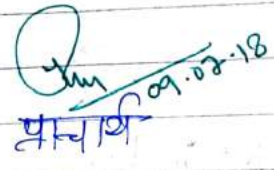 09.02.18
प्राचार्य